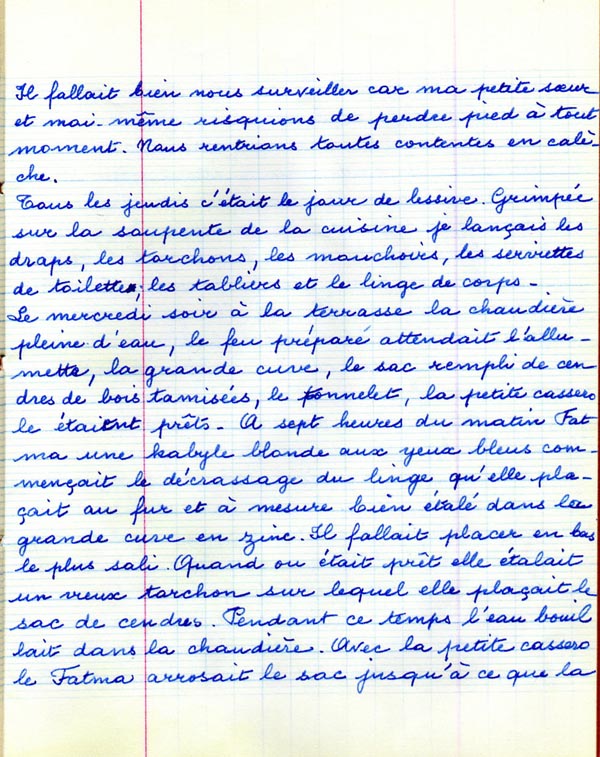 Il fallait bien nous surveiller car ma petite sœur
et moi-même risquions de perdre pied à tout
moment. Nous rentrions toutes contentes en calè-
che.
Tous les jeudis c'était le jour de lessive. Grimpée
sur la soupente de la cuisine je lançais les
draps, les torchons, les mouchoirs, les serviettes
de toilette, les tabliers et le linge de corps -
Le mercredi soir à la terrasse la chaudière
pleine d'eau, le feu préparé attendait l'allu -
mette, la grande cuve, le sac rempli de cen
dres de bois tamisées, le tonnelet, la petite cassero
le étaient prêts - A sept heures du matin Fat
ma une kabyle blonde aux yeux bleus com -
mençait le décrassage du linge qu'elle pla -
çait au fur et à mesure bien étalé dans la
grande cuve en zinc. Il fallait placer en bas
le plus sali. Quand ou était prêt elle étalait
un vieux torchon sur lequel elle plaçait le
sac de cendres. Pendant ce temps l'eau bouil
lait dans la chaudière. Avec la petite cassero
le Fatma arrosait le sac jusqu'à ce que la